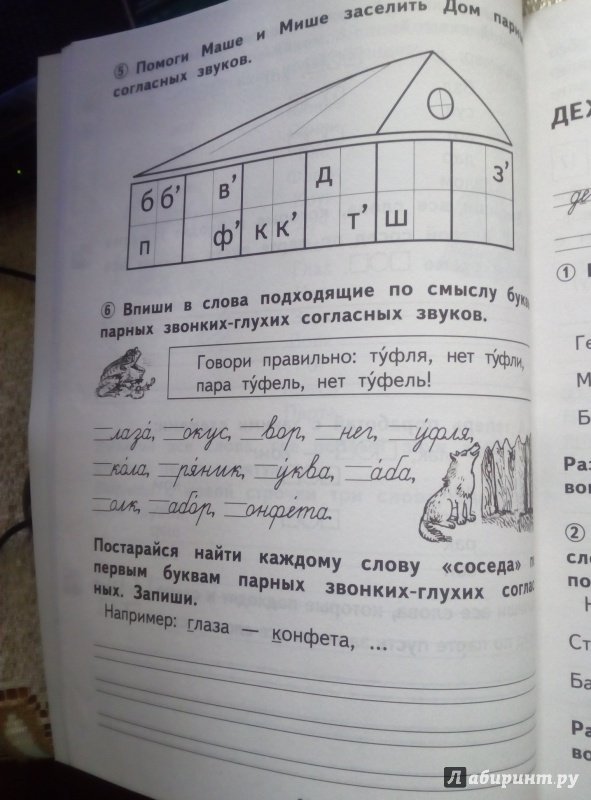 ⑤ Помоги Маше и Мише заселить Дом
согласных звуков.
б б’ в’ Д з’
п ф’ к к’ т’ Ш
⑥ Впиши в слова подходящие по смыслу
парных звонких-глухих согласных звуков.
Говори правильно: ту́фля, нет ту́фли,
пара ту́фель, нет ту́фель!
_лаза́, _о́кус, _вор, _нег, _у́фля,
_ко́ла, _ряник, _у́ква, _а́ба,
_олк, _або́р, _онфе́та.
Постарайся найти каждому слову «соседа»
первым буквам парных звонких-глухих
ных. Запиши.
Например: глаза — конфета, ...
ДЕ
де
①
Ге
М
Б
Ра
во
②
сл
по
Н
Ст
Ба
Ра
во
Лабиринт.ру